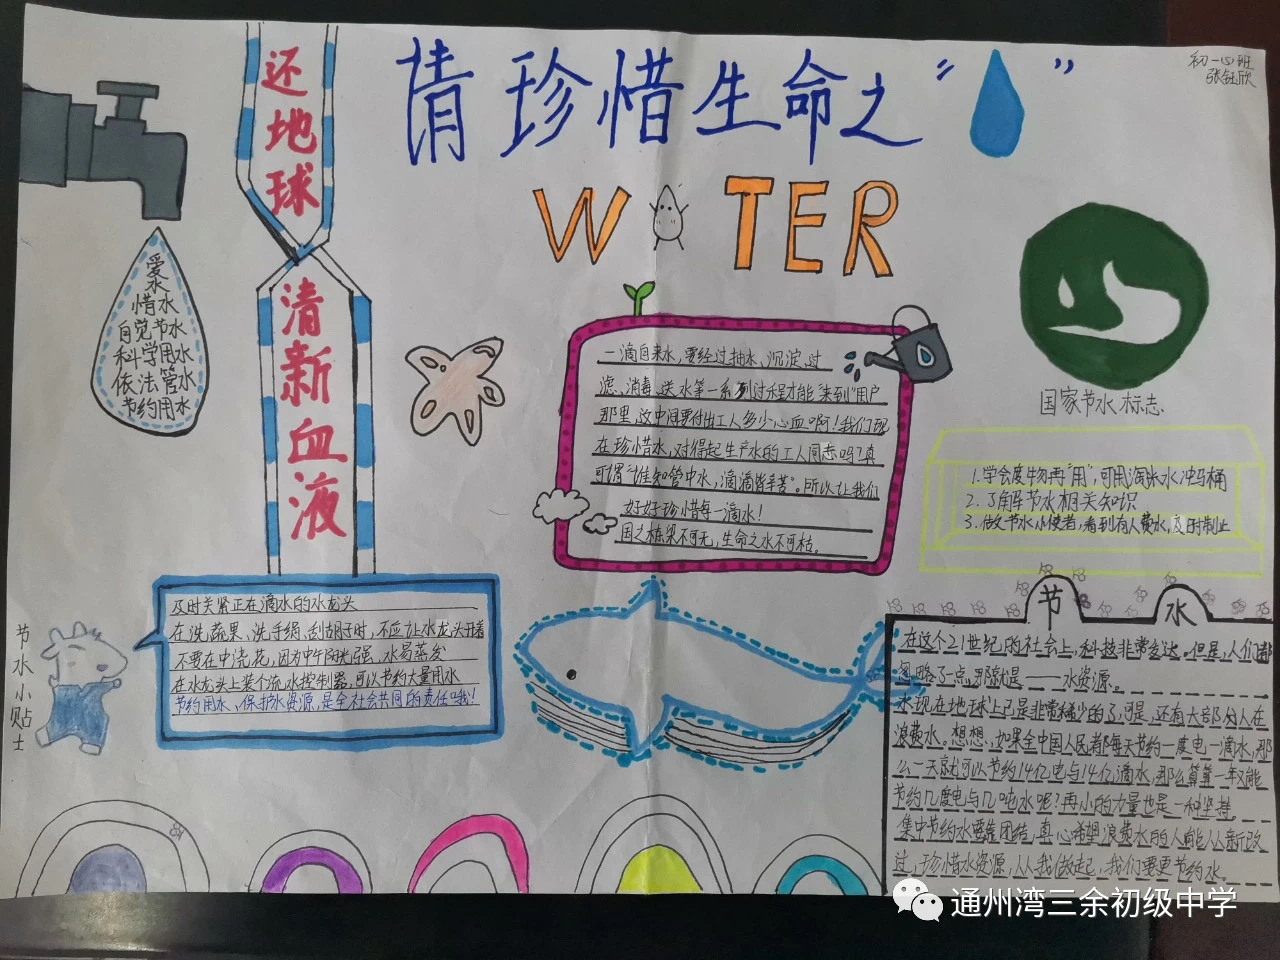 请珍惜生命之“ ”
初一(3)班
张钰欣
W TER
还地球
清新血液
爱水
惜水
自觉节水
科学用水
依法管水
节约用水
国家节水标志
一滴自来水,要经过抽水、沉淀、过
滤、消毒、送水等一系列过程才能“来到”用户
那里,这中间要付出工人多少心血啊!我们现
在珍惜水,对得起生产水的工人同志吗?真
可谓“谁知管中水,滴滴皆辛苦”。所以让我们
好好珍惜每一滴水!
国之栋梁不可无,生命之水不可枯。
1.学会废物再“用”,可用淘米水冲马桶
2.了解节水相关知识
3.做节水小使者,看到有人费水,及时制止
节水小贴士
及时关紧正在滴水的水龙头
在洗蔬果、洗手绢、刮胡子时,不应让水龙头开着
不要在中浇花,因为中午阳光强,水易蒸发
在水龙头上装个流水控制器,可以节约大量用水
节约用水、保护水资源,是全社会共同的责任哦!
节 水
在这个21世纪的社会上,科技非常发达。但是,人们都
忽略了一点,那就是——水资源。
水现在地球上已是非常稀少的了,可是,还有大部分人在
浪费水。想想,如果全中国人民都每天节约一度电一滴水,那
么一天就可以节约14亿电与14亿滴水,那么算算一年又能
节约几度电与几吨水呢?再小的力量也是一种坚持。
集中节约水要靠团结,真心希望浪费水的人能从新改
过,珍惜水资源,从我做起,我们要更节约水。
通州湾三余初级中学